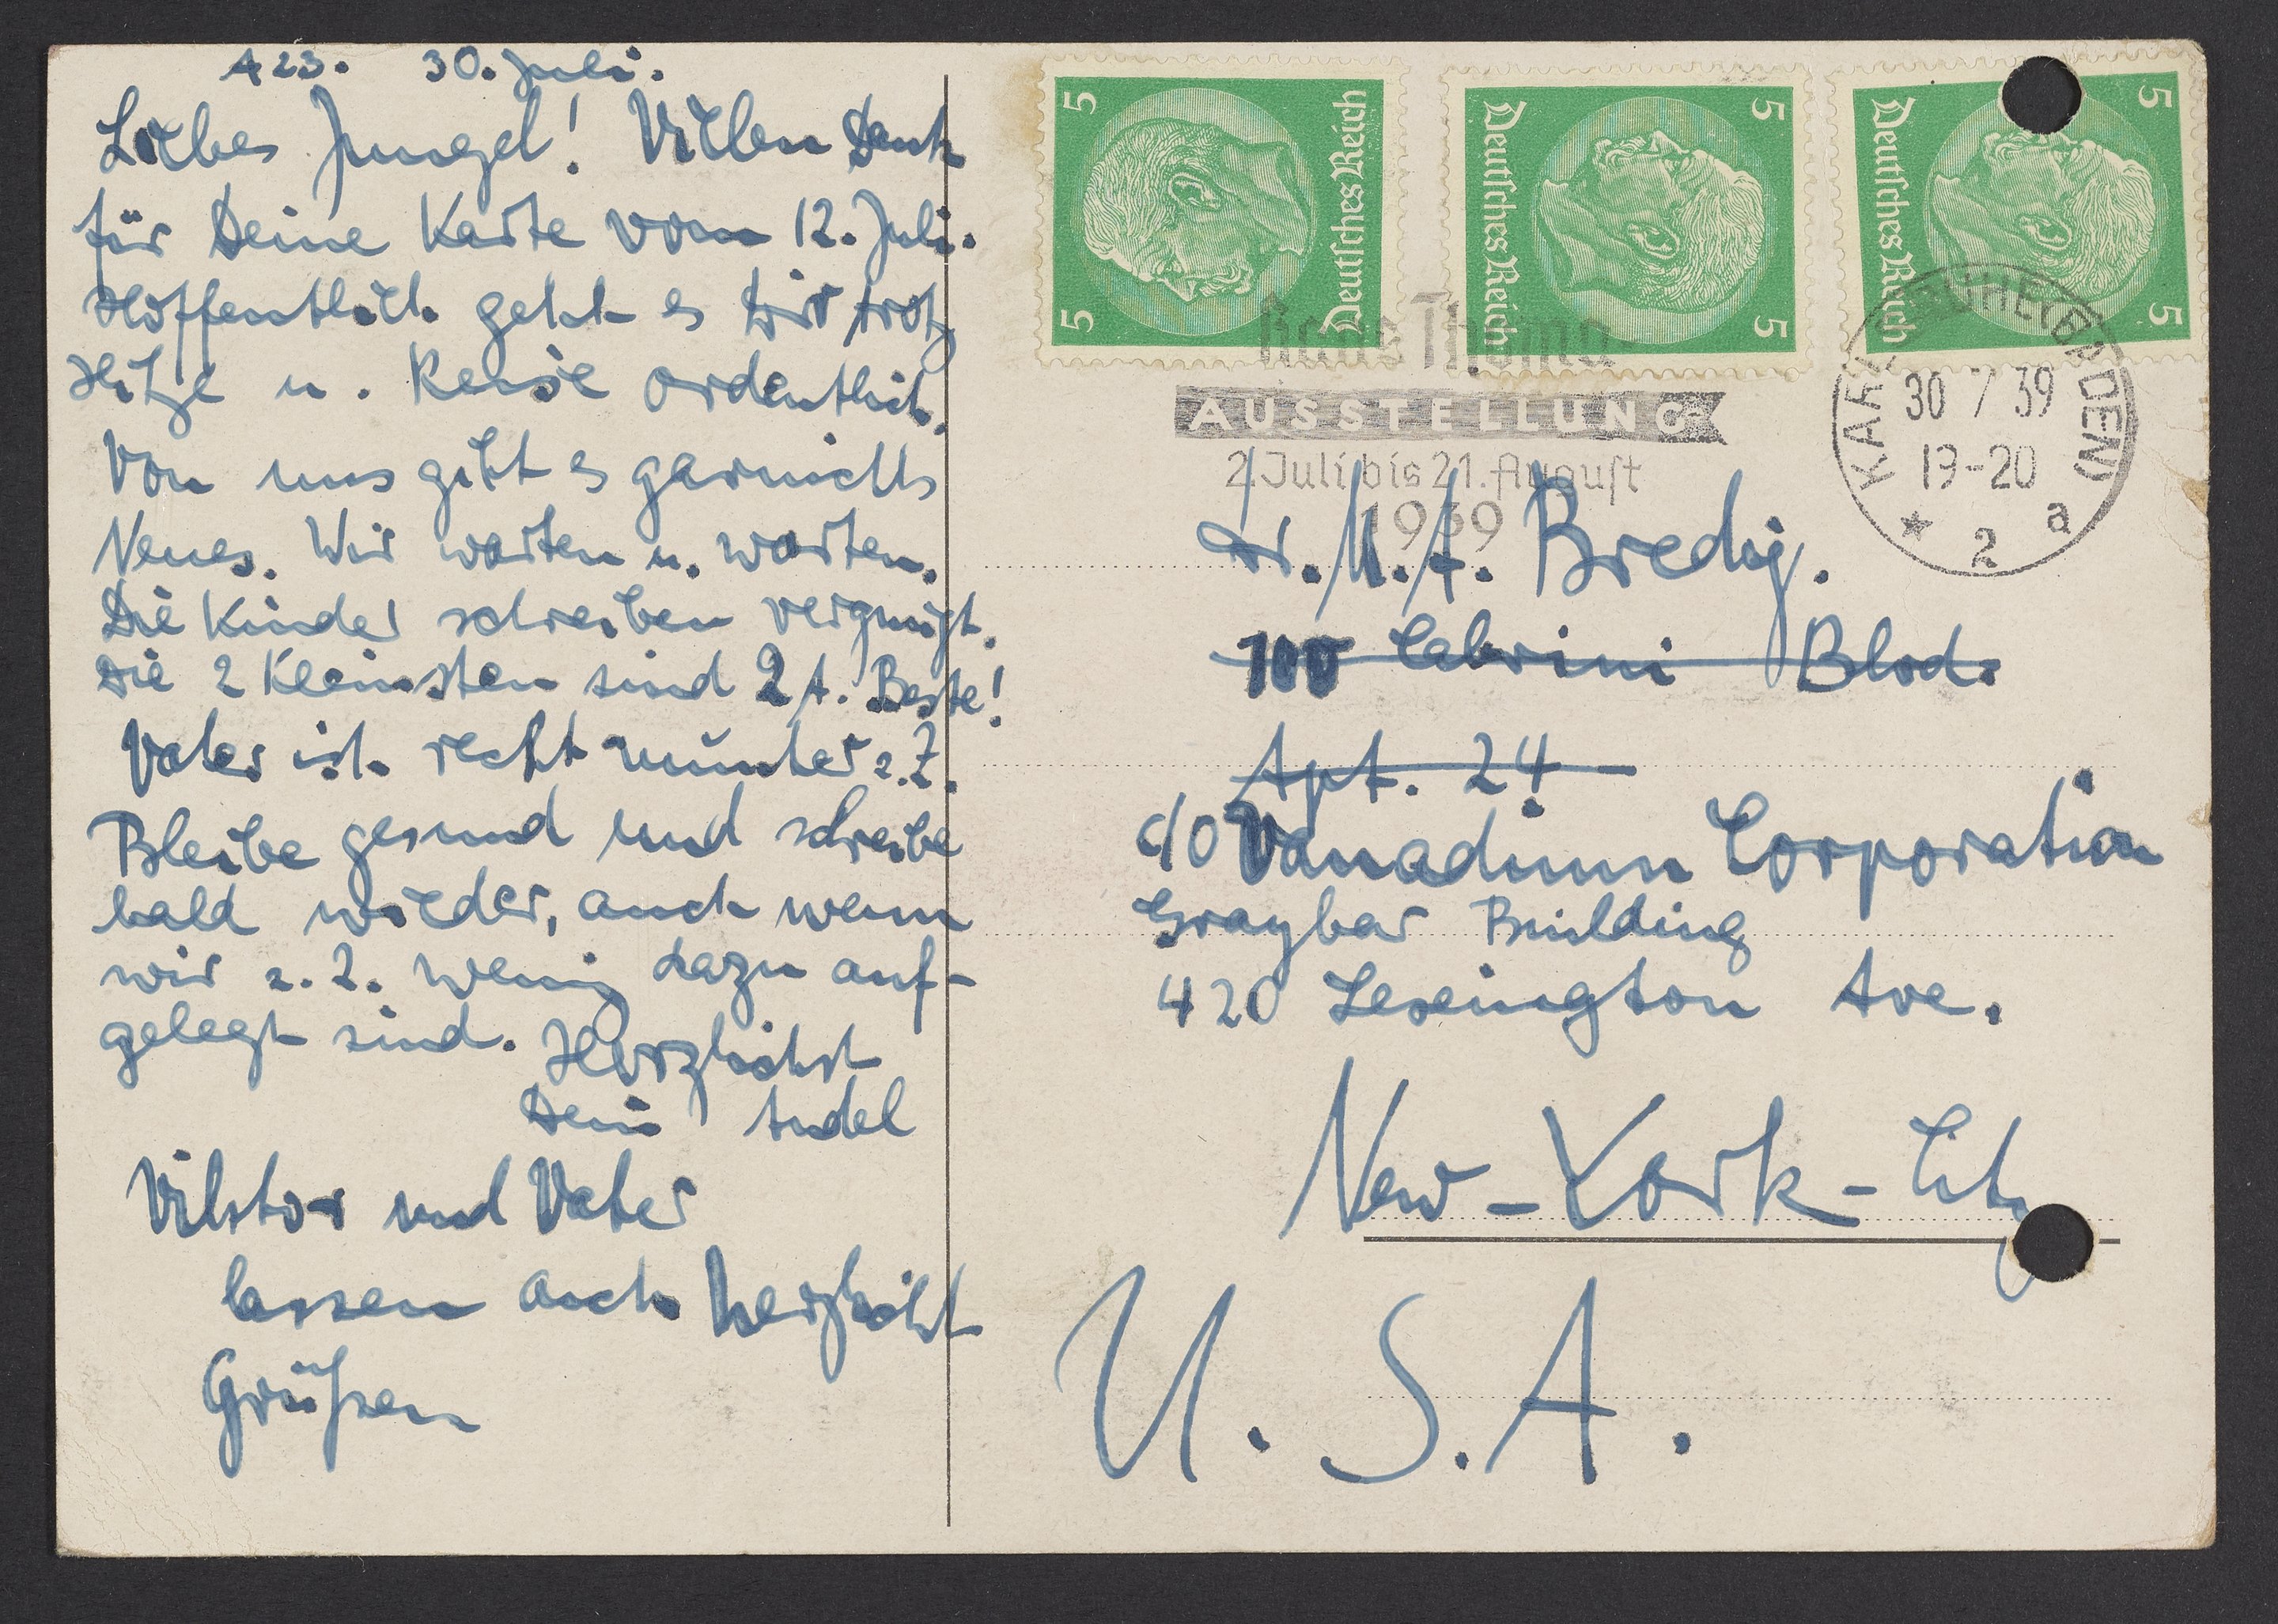 A 23. 30. Juli.
Liebes Jungel! Vielen Dank
für Deine Karte vom 12. Juli.
Hoffentlich geht es Dir trotz
Hitze u. Reise ordentlich.
Von uns gibt es garnichts
Neues. Wir warten u. warten.
Die Kinder schreiben vergnügt.
Die 2 Kleinsten sind 2 t. Beste!
Vater ist recht munter z. Z.
Bleibe gesund und schreibe
bald wieder, auch wenn
wir z. Z. wenig dazu auf-
gelegt sind. Herzlichst
Dein Andel
Viktor und Vater
lassen auch herzlichst
Grüßen
5 5 Deutsches Reich
5 5 Deutsches Reich
5 5 Deutsches Reich
Hans Thoma
AUSSTELLUNG
2. Juli bis 21. August
1939
KARLSRUHE (BADEN)
30 7 39
19-20
* 2 a
Dr. M. A. Bredig.
100 Cabrini Blvd.
Apt. 24
c/o Vanadium Corporation
Graybar Building
420 Lexington Ave.
New-York-City
U. S. A.